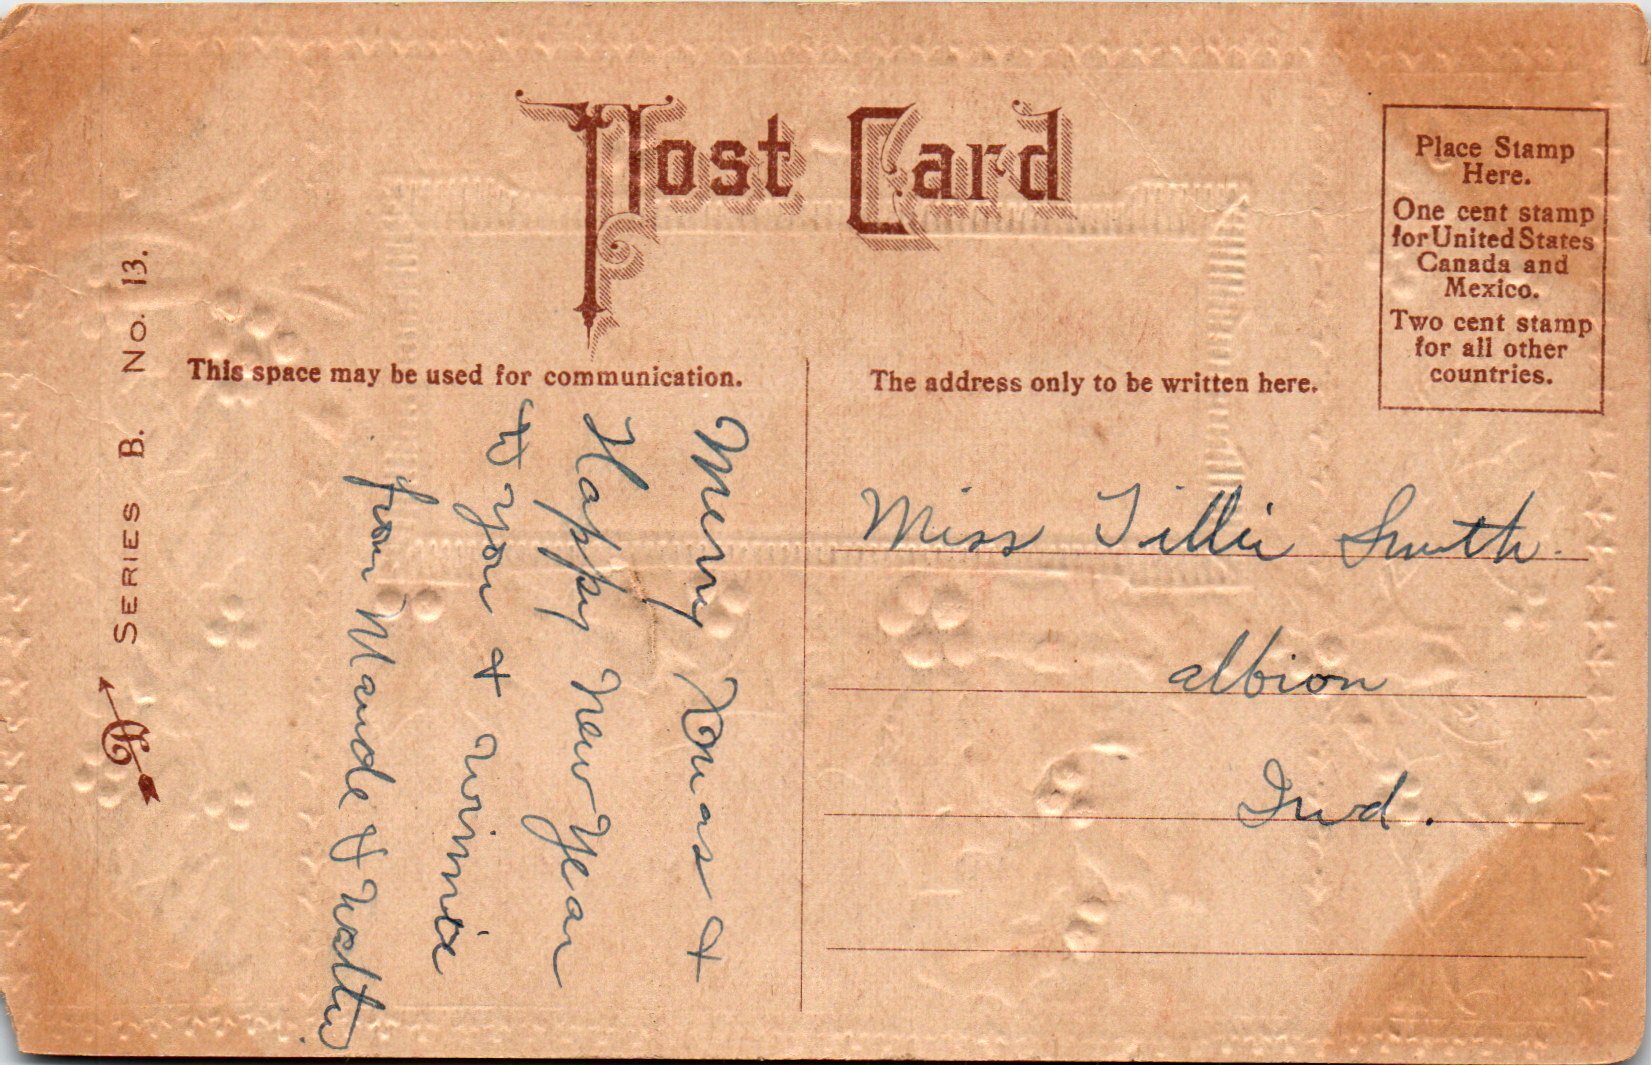 Post Card
Place Stamp
Here.
One cent stamp
for United States
Canada and
Mexico.
Two cent stamp
for all other
countries.
This space may be used for communication.
The address only to be written here.
SERIES B. No. 13.
Merry Xmas +
Happy New Year
to you + Winnie
from Maude & Walter
Miss Tillie Smith
Albion
Ind.